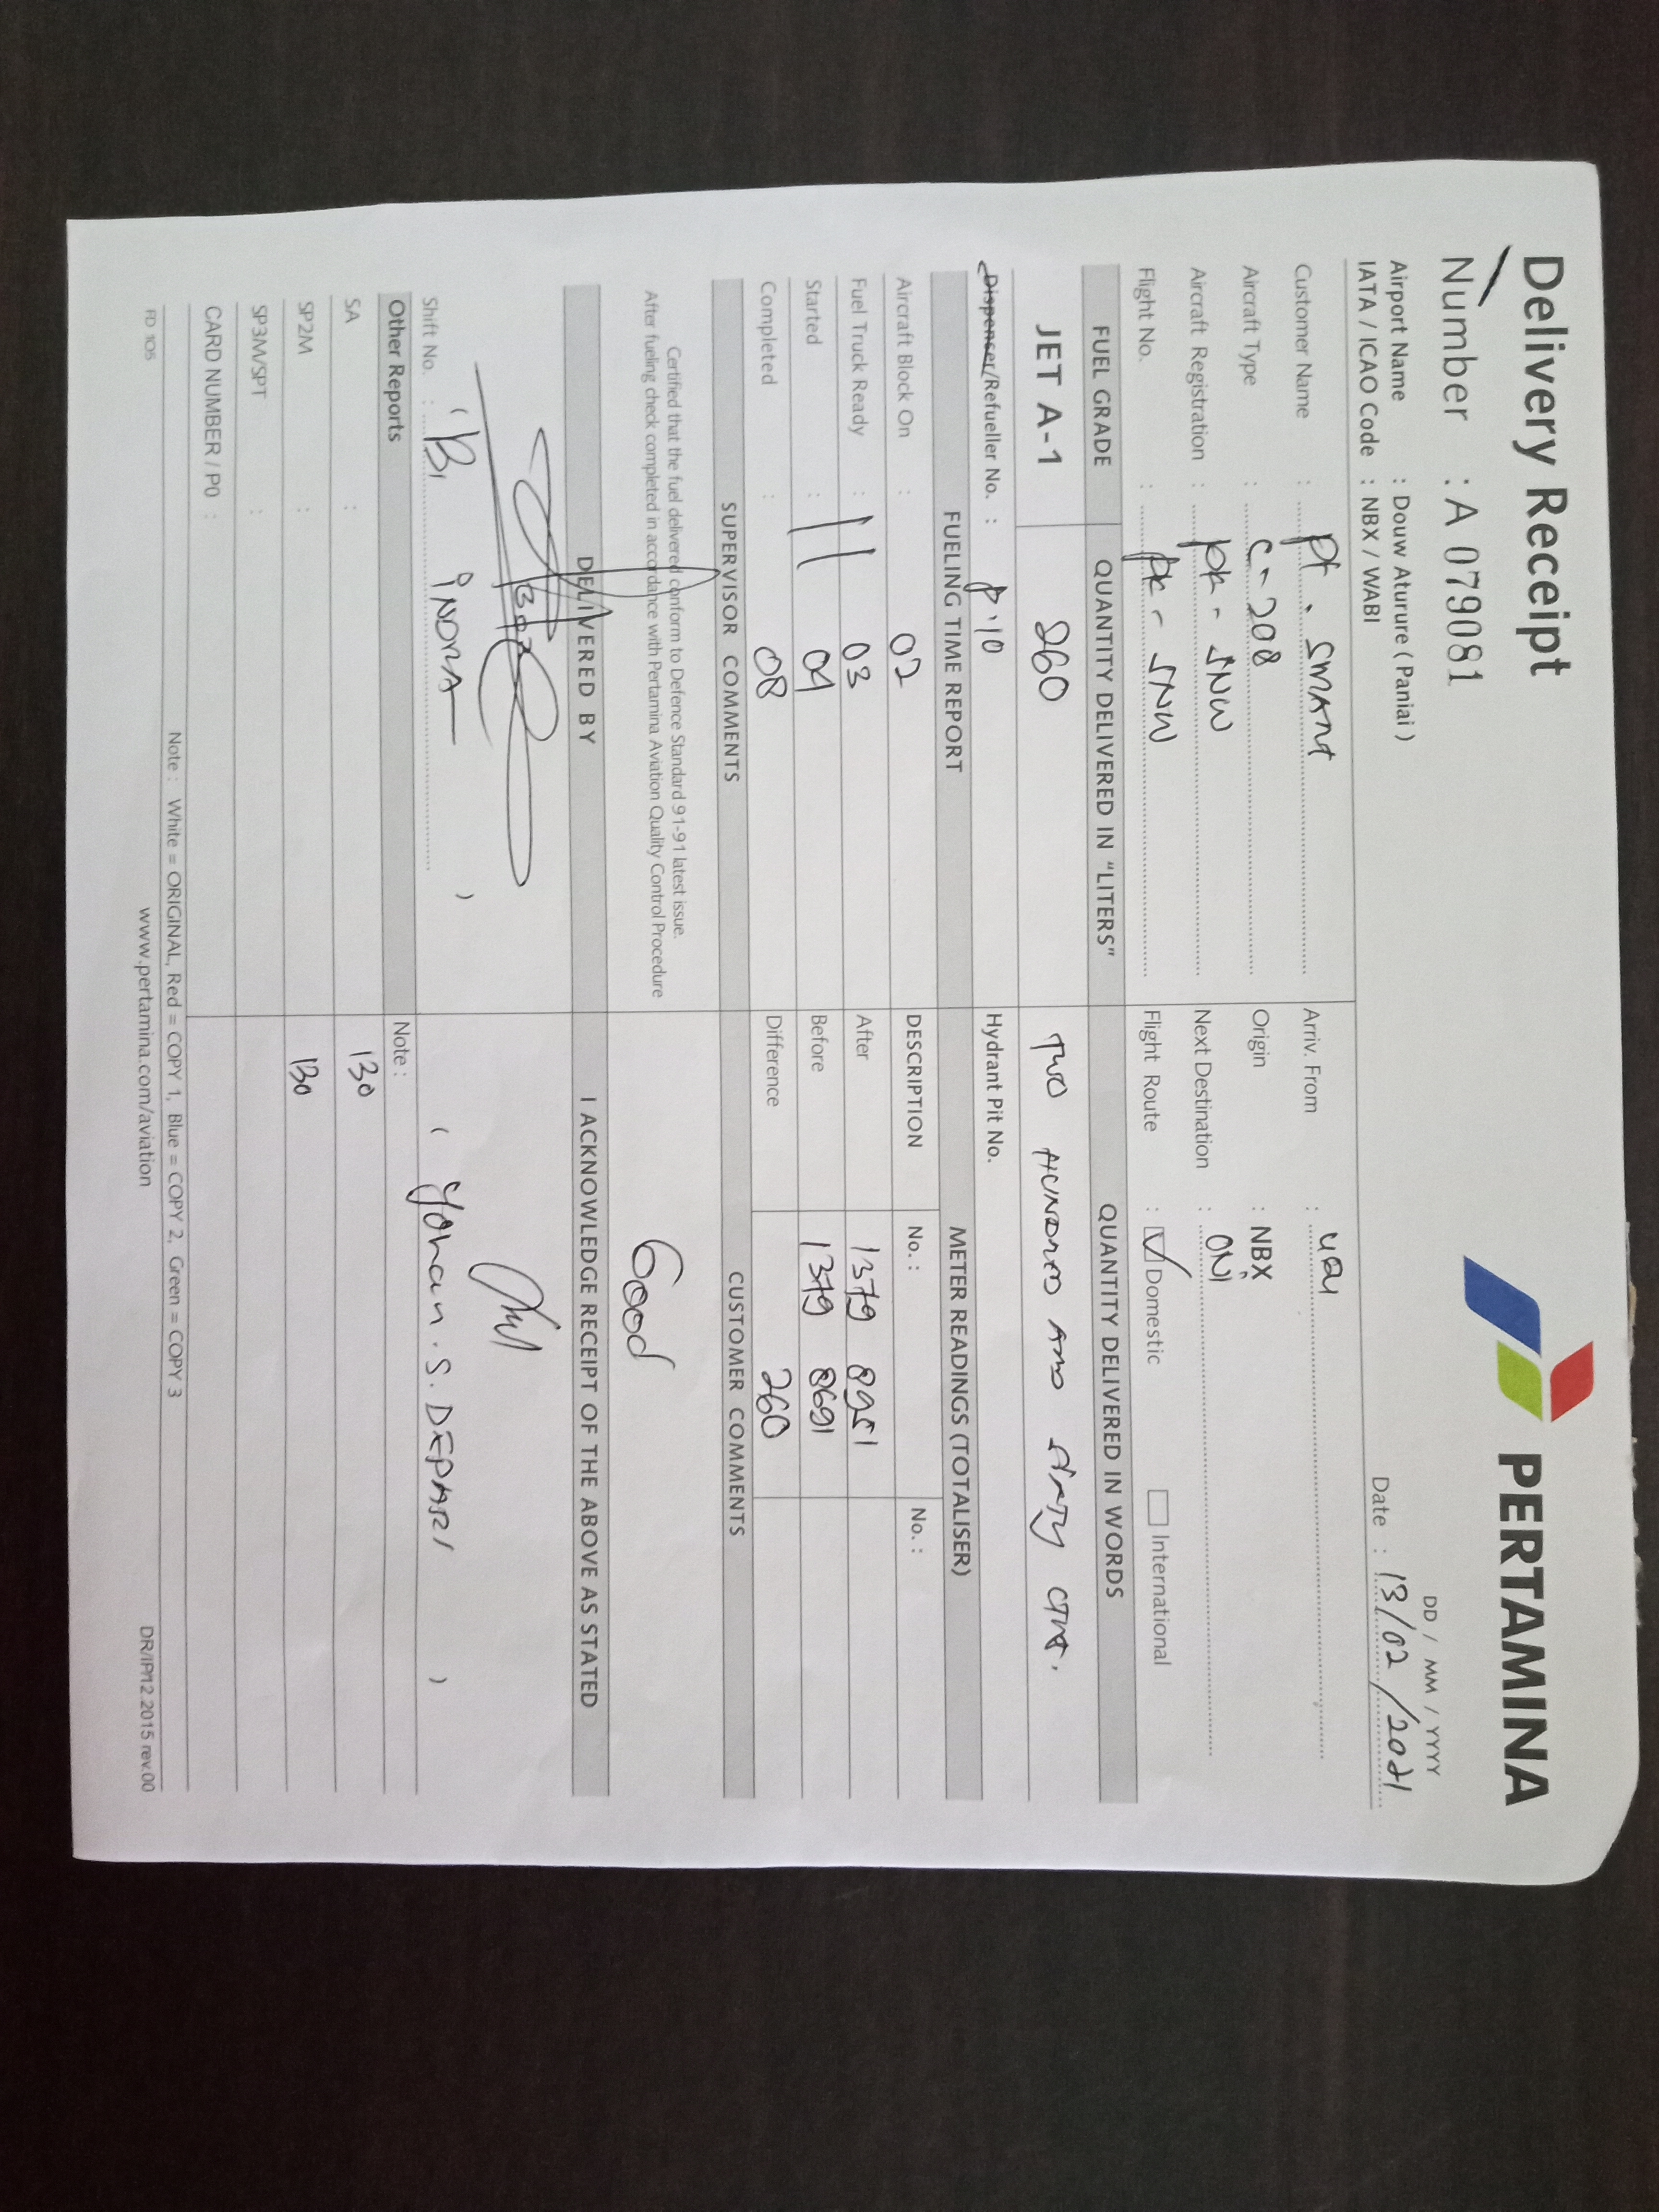 Delivery Receipt
PERTAMINA
Number : A 079081
DD / MM / YYYY
Airport Name : Douw Aturure ( Paniai )
Date : 13/02/2021
IATA / ICAO Code : NBX / WABI
Customer Name : PT. SMART
Arriv. From :
Aircraft Type : C-208
Origin : NBX
Aircraft Registration : PK - SNW
Next Destination : ONI
Flight No. : PK - SNW
Flight Route : Domestic International
FUEL GRADE QUANTITY DELIVERED IN "LITERS" QUANTITY DELIVERED IN WORDS
JET A-1 260 TWO HUNDRED AND SIXTY
Dispenser/Refueller No. : P.10 Hydrant Pit No.
FUELING TIME REPORT METER READINGS (TOTALISER)
Aircraft Block On : 02 DESCRIPTION No. : No. :
Fuel Truck Ready : 11 03 After 1379 8951
Started : 04 Before 1379 8691
Completed : 08 Difference 260
SUPERVISOR COMMENTS CUSTOMER COMMENTS
Certified that the fuel delivered conform to Defence Standard 91-91 latest issue.
After fueling check completed in accordance with Pertamina Aviation Quality Control Procedure
Good
DELIVERED BY I ACKNOWLEDGE RECEIPT OF THE ABOVE AS STATED
Shift No. : ( INDRA ) ( Yonan . S. )
Other Reports Note :
SA : 130
SP2M : 130
SP3M/SPT :
CARD NUMBER / PO :
Note : White = ORIGINAL, Red = COPY 1, Blue = COPY 2, Green = COPY 3
FD 105 www.pertamina.com/aviation DR/IP/12.2015 rev.00